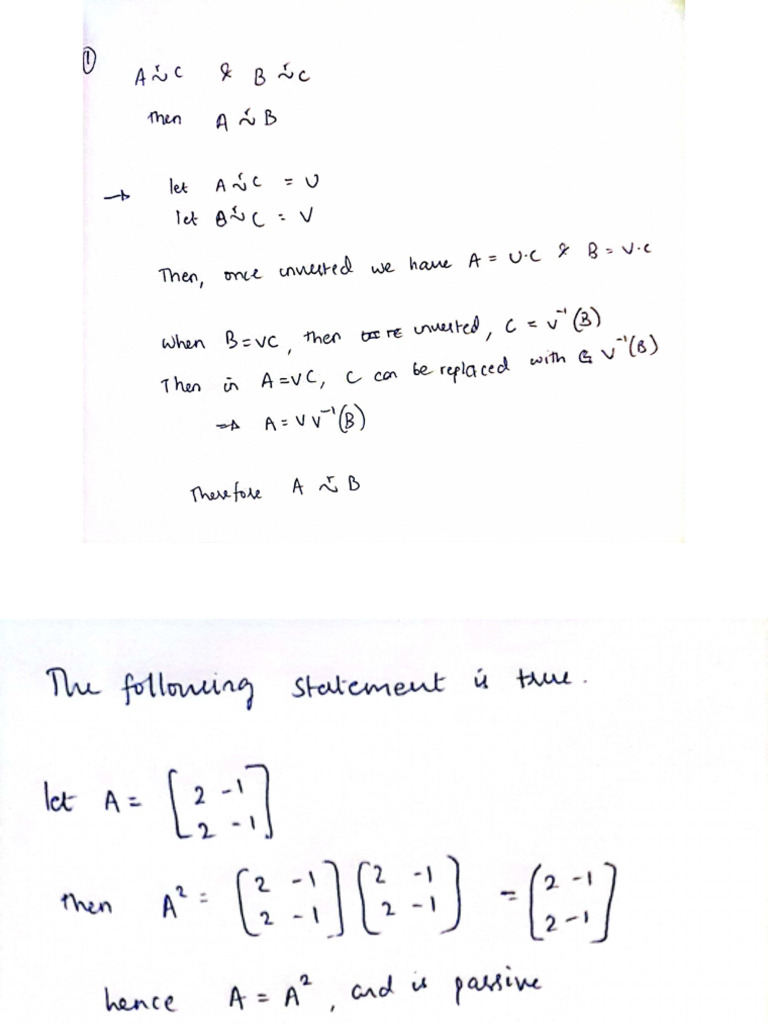 ①
A ~ʳ C & B ~ʳ C
Then A ~ʳ B
→ let A ~ʳ C = U
let B ~ʳ C = V
Then, once inverted we have A = U·C & B = V·C
When B = VC, then inverted, C = V⁻¹(B)
Then in A = VC, C can be replaced with V⁻¹(B)
⇒ A = V V⁻¹(B)
Therefore A ~ʳ B
The following statement is true.
let A = [2 -1
2 -1]
then A² = [2 -1 [2 -1 = [2 -1
2 -1] 2 -1] 2 -1]
hence A = A², and is passive